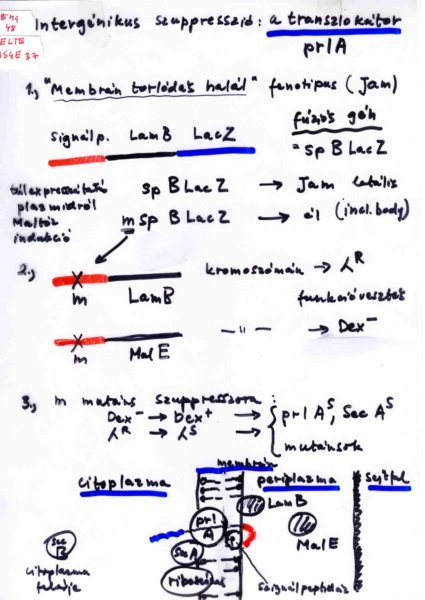 48
ELTE
Intergénikus szuppresszió: a transzlokátor
prlA
1, "Membrán torlódás halál" fenotipus (Jam)
fúziós gén
Signálp. LamB LacZ
= sp B LacZ
túlexpresszáltató sp B LacZ → Jam letális
plazmidról
Maltóz m sp B LacZ → él (incl. body)
indukció
2., kromoszómán → λR
m LamB
funkcióvesztés
m MalE —"— → Dex-
3., m mutáns szuppresszora
Dex- → Dex+ → prl AS, Sec AS
λR → λS → mutánsok
membrán
citoplazma periplazma sejtfal
LamB
prl
A
MalE
sec
B
SecA
citoplazma
riboszóma
szignálpeptidáz